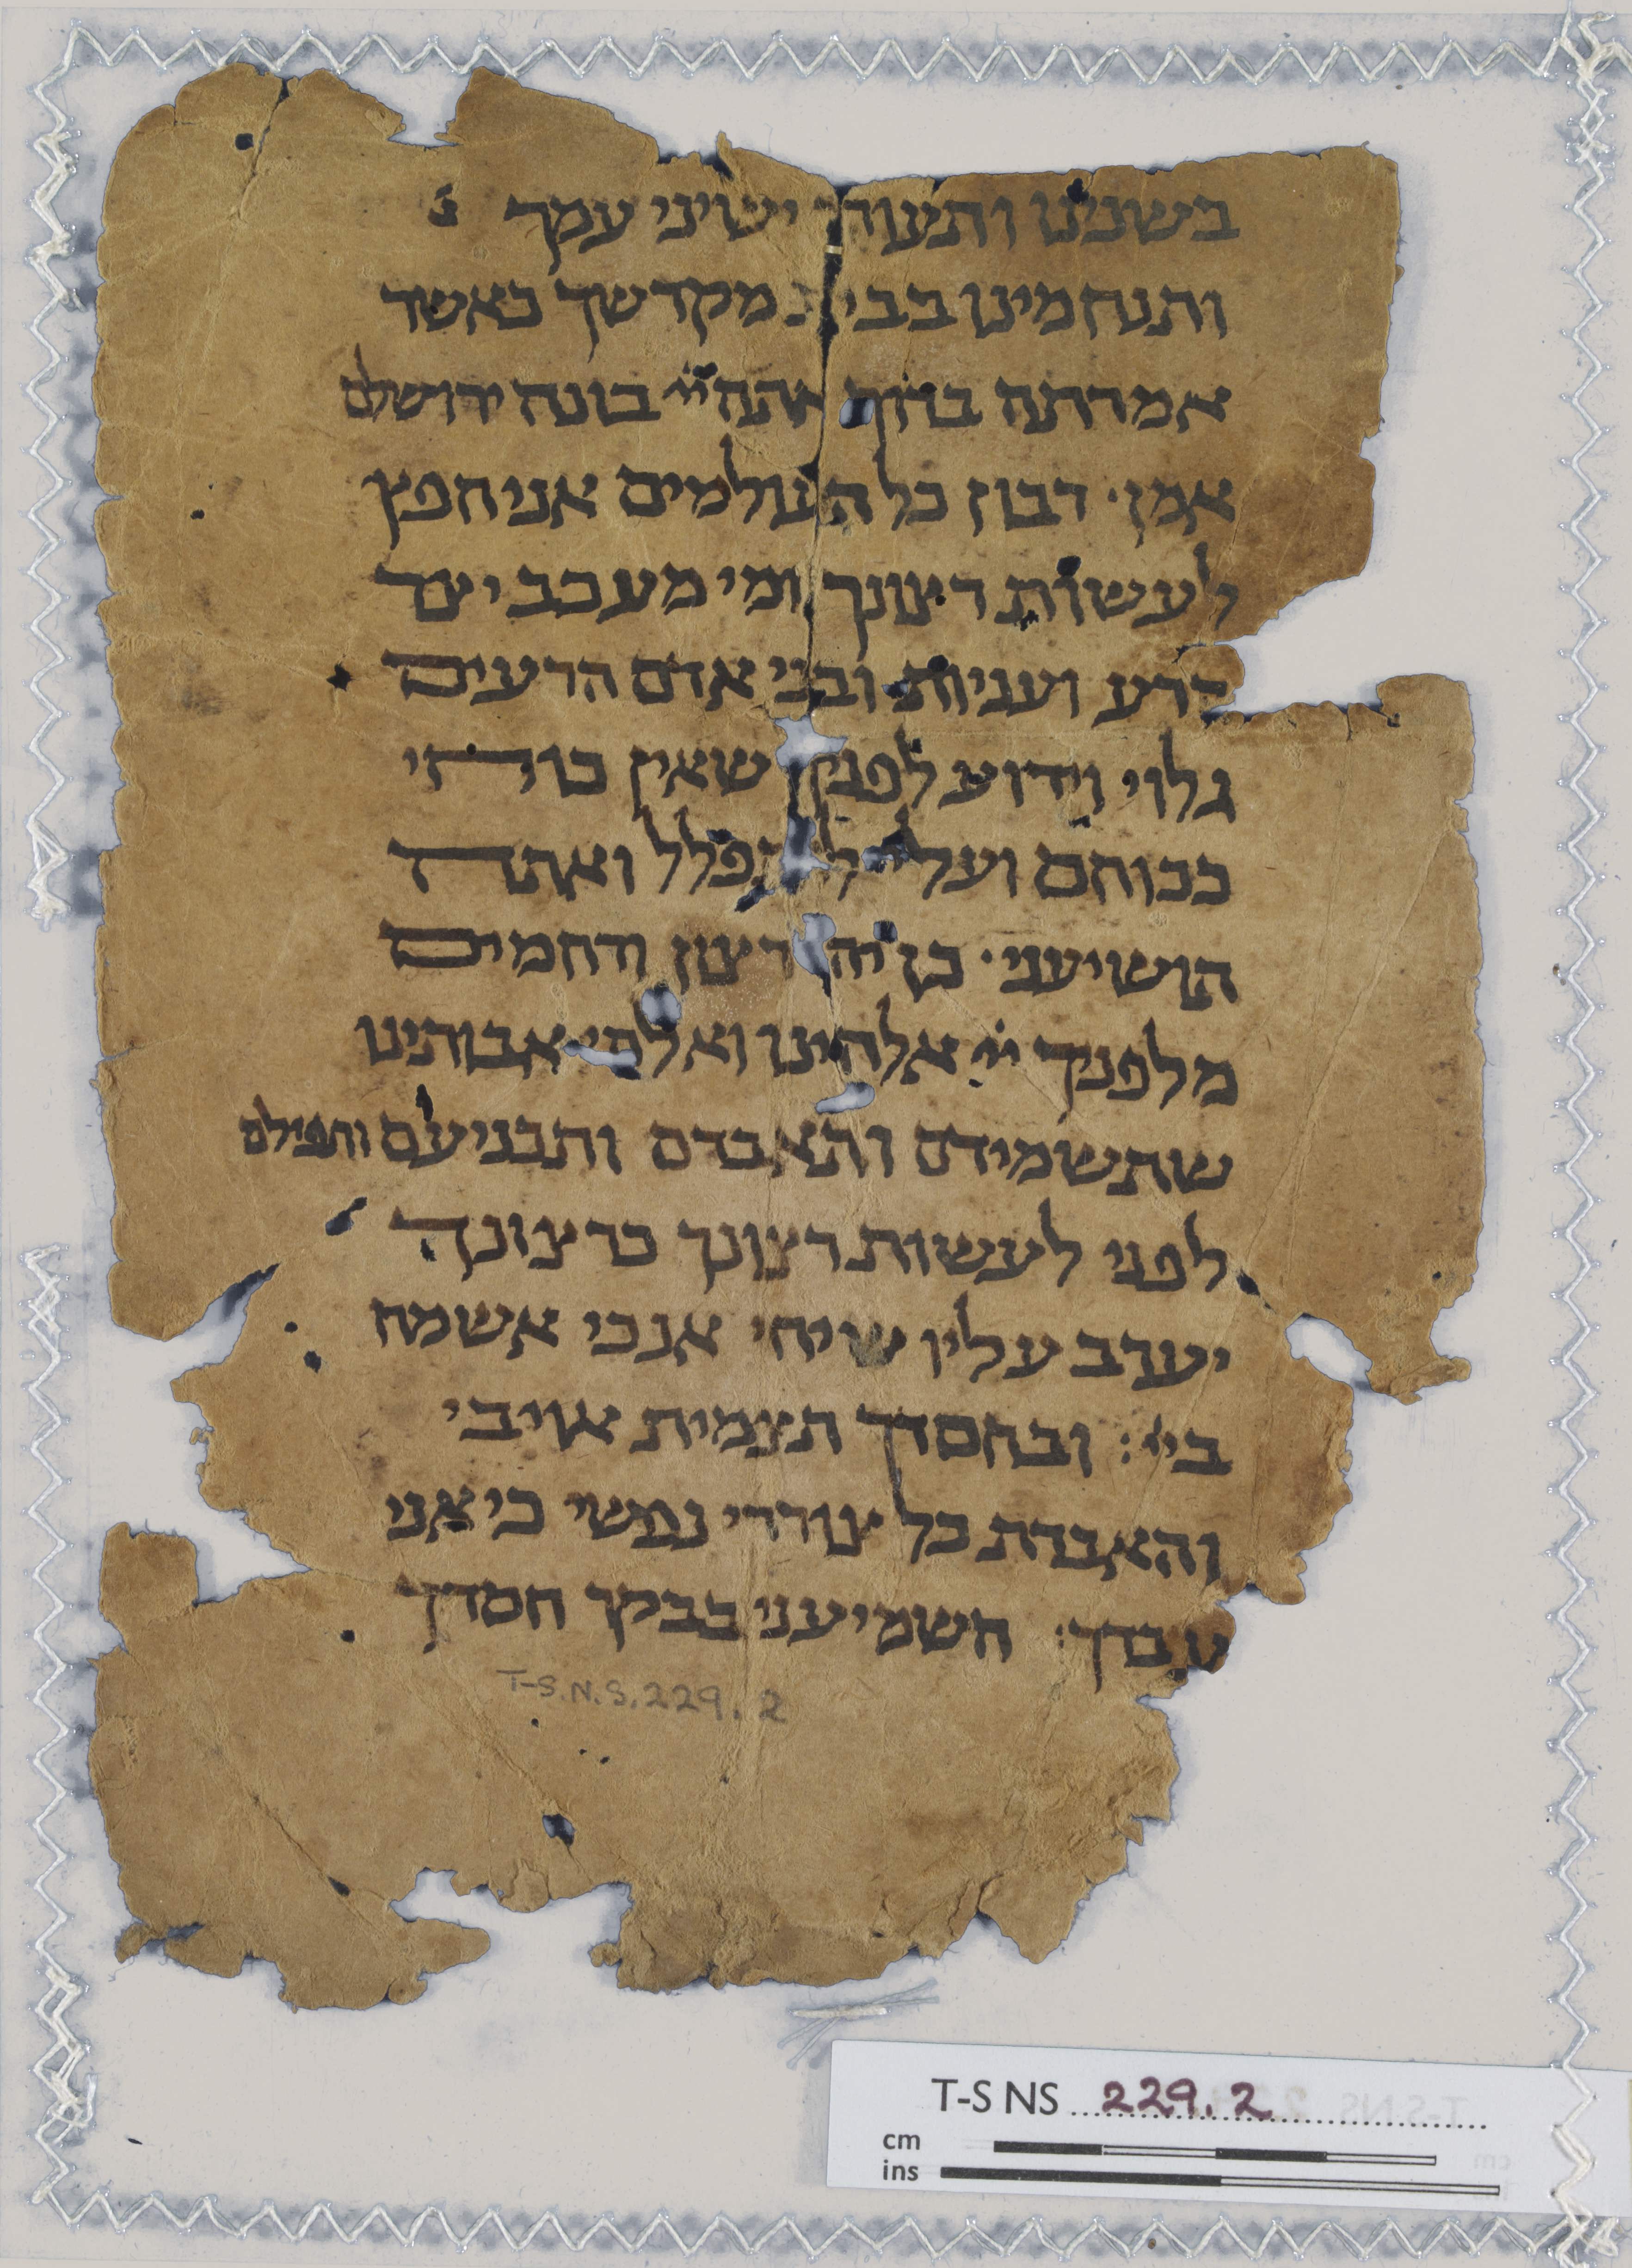 בשנינו ותעורר ישיני עמך
ותנחמינו בבית מקדשך כאשר
אמרתה ברוך אתה יי בונה ירושלם
אמן רבון כל העולמים אני חפץ
לעשות רצונך ומי מעכב יצר
הרע ועניות ובני אדם הרעים
גלוי וידוע לפניך שאין כוחי
ככוחם ועלי להתפלל ואתה
הושיעני כן יהי רצון ורחמים
מלפניך יי אלהינו ואלהי אבותינו
שתשמידם ותאבדם ותכניעם ותפילם
לפני לעשות רצונך כרצונך
יערב עליו שיחי אנכי אשמח
ביי׃ ובחסדך תצמית אויבי
והאבדת כל צוררי נפשי כי אני
עבדך׃ השמיעני בבקר חסדך
T-S.N.S.229.2
T-S NS 229.2
cm
ins